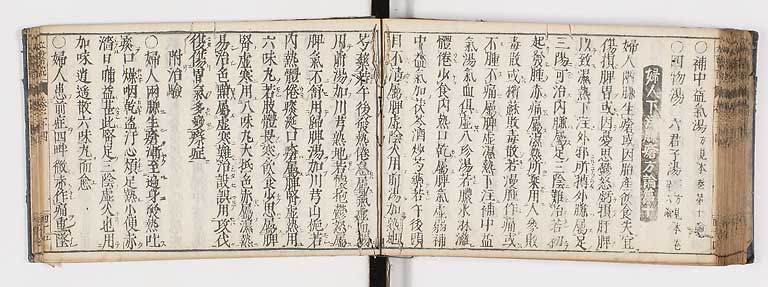 ○補中益氣湯
○四物湯 六君子湯
婦人下注臁瘡方論第十
婦人兩臁生瘡或因胎產飲食失宜
傷損脾胃或因憂思鬱怒虧損肝脾
以致濕熱下注外邪所搏外臁屬足
三陽可治內臁屬足三陰難治若初
起發腫赤痛屬濕熱所乘用人參敗
毒散或檳蘇敗毒散若漫腫作痛或
不腫不痛屬脾虛濕熱下注補中益
氣湯氣血俱虛八珍湯若膿水淋漓
體倦少食內熱口乾屬脾氣虛弱補
中益氣加茯苓酒炒芍藥若午後頭
目不清屬脾虛陰火用前湯加熟地
芍藥若午後發熱體倦屬氣虛血傷
用前湯加川芎熟地若懷抱鬱怒屬
脾氣不舒用歸脾湯加川芎山梔若
內熱體倦痰涎口瘡屬脾腎虛熱用
六味丸若肢體畏寒飲食少思屬脾
腎虛寒用八味丸大抵色赤屬濕熱
易治色黯屬虛寒難治設誤用攻伐
復傷胃氣多 瘵症
附治驗
○婦人兩臁生瘡漸至遍身發熱吐
痰口燥咽乾盜汗心煩足熱小便赤
濇日晡益甚此腎足三陰虛火也用
加味逍遙散六味丸而愈
○婦人患前症四畔微赤作痛重墜